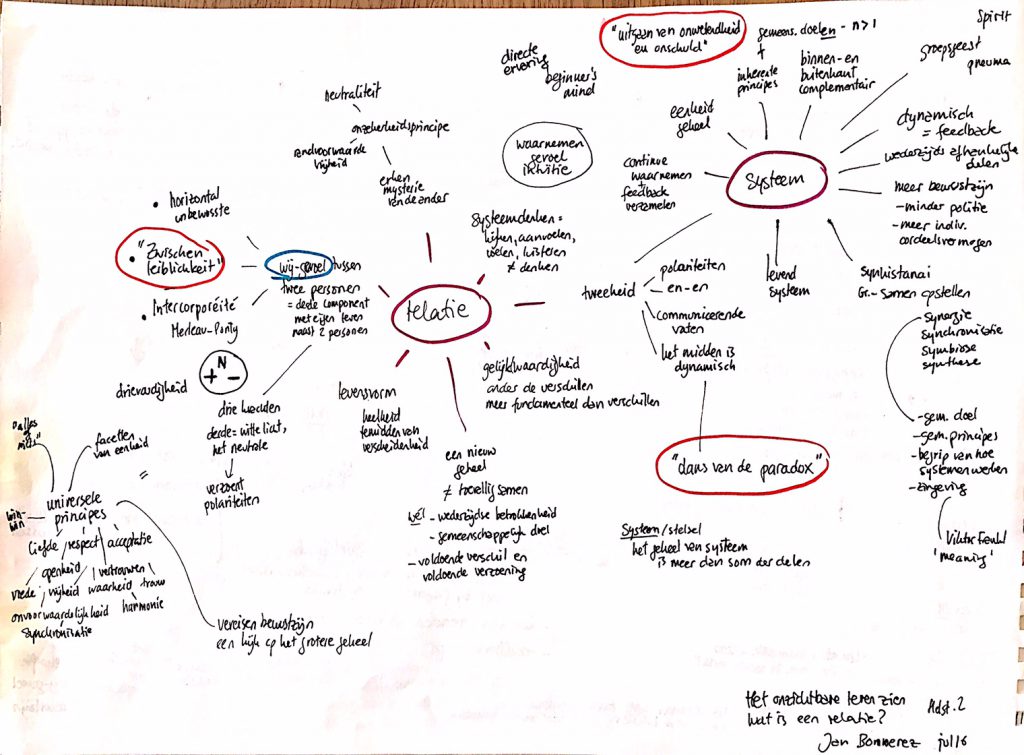 "uitgaan van onwetendheid
en onschuld"
gemeens. doelen - n>1
+
inherente
principes
binnen- en
buitenkant
complementair
Spirit
groepsgeest
pneuma
directe
ervaring
beginner's
mind
waarnemen
gevoel
intuïtie
eenheid
geheel
continue
waarnemen
+
feedback
verzamelen
Systeem
dynamisch
= feedback
wederzijds afhankelijke
delen
meer bewustzijn
- minder politie
- meer indiv.
oordeelsvermogen
levend
systeem
synhistanai
Gr. - samen opstellen
synergie
synchronisatie
symbiose
synthese
- gem. doel
- gem. principes
- begrip van hoe
systemen werken
- zingeving
Viktor Frankl
'meaning'
tweeheid
polariteiten
en-en
communicerende
vaten
het midden is
dynamisch
"dans van de paradox"
Systeem/stelsel
het geheel van systeem
is meer dan som der delen
neutraliteit
onzekerheidsprincipe
randvoorwaarde
vrijheid
erken
mysterie
van de ander
systeemdenken =
kijken, aanvoelen,
voelen, luisteren
≠ denken
relatie
• horizontal
unbewusste
• "Zwischen
leiblichkeit"
• Intercorporéité
Merleau-Ponty
wij-gevoel tussen
twee personen
= derde component
met eigen leven
naast 2 personen
drievoudigheid
+ N -
drie hoeden
derde = witte licht,
het neutrale
verzoent
polariteiten
levensvorm
heelheid
temidden van
verscheidenheid
gelijk(waard)igheid
onder de verschillen
meer fundamenteel dan verschillen
een nieuw
geheel
≠ toevallig samen
wél - wederzijdse betrokkenheid
- gemeenschappelijk doel
- voldoende verschil en
voldoende verzoening
"alles of
niets"
facetten
van eenheid
=
win-
win
universele
principes
liefde
respect
acceptatie
openheid
vertrouwen
vrede
vrijheid
waarheid
trouw
onvoorwaardelijkheid
harmonie
synchronisatie
vereisen bewustzijn
een kijk op het grotere geheel
Het onzichtbare leren zien
Hdst. 2
wat is een relatie?
Jan Bommerez
jul 16